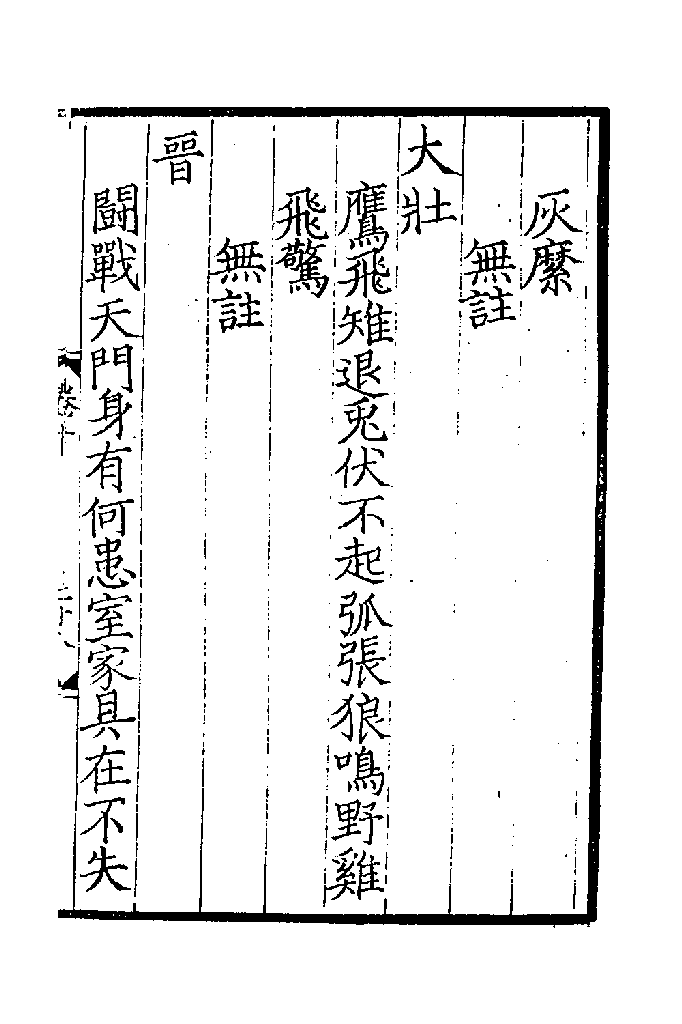 灰縻
無註
大壯
鷹飛雉退兎伏不起弧張狼鳴野雞
飛驚
無註
晉
闘戰天門身有何患室家具在不失